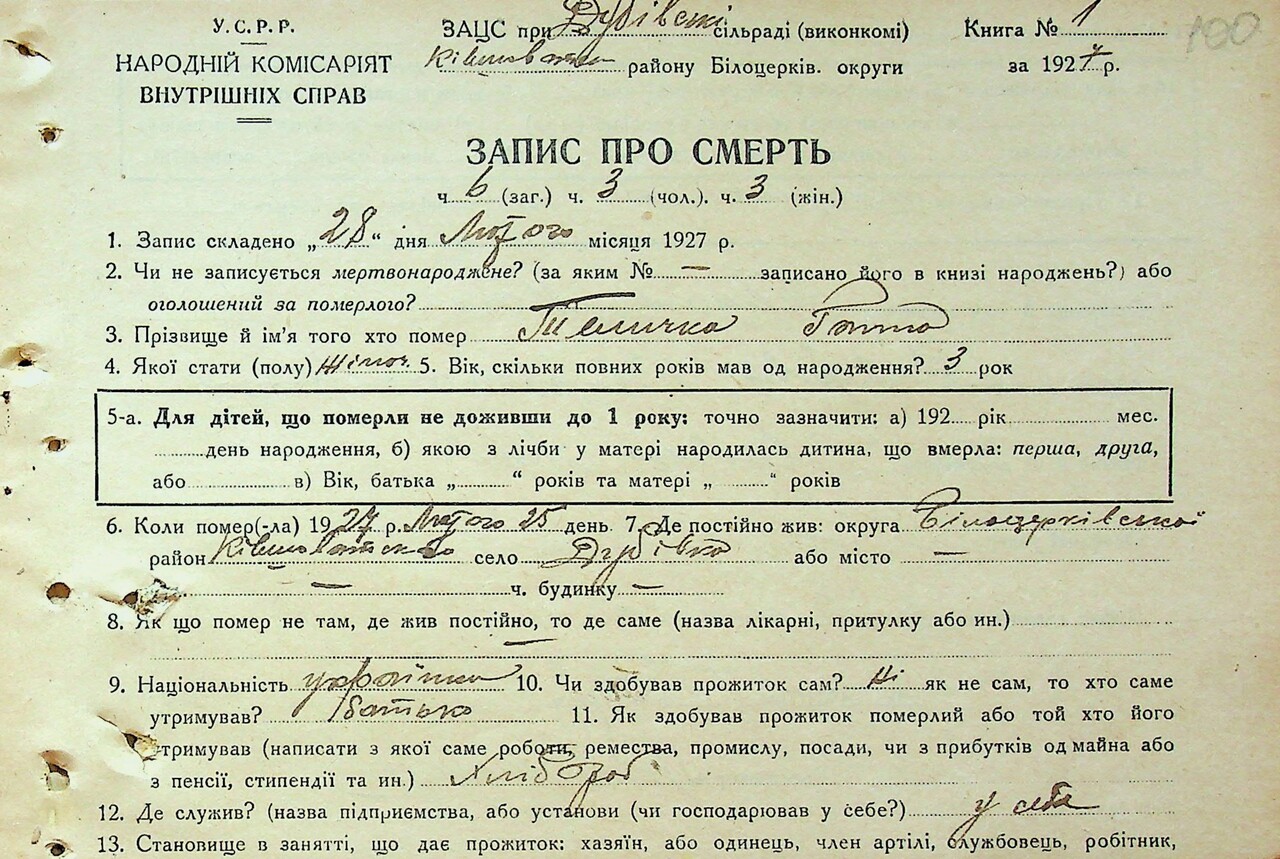 У. С. Р. Р.
НАРОДНІЙ КОМІСАРІЯТ
ВНУТРІШНІХ СПРАВ
ЗАЦС при Дубівській сільраді (виконкомі)
району Білоцерків. округи
Книга № 1
за 1927 р.
100
ЗАПИС ПРО СМЕРТЬ
ч. 6 (заг.) ч. 3 (чол.). ч. 3 (жін.)
1. Запис складено „28“ дня Лютого місяця 1927 р.
2. Чи не записується мертвонароджене? (за яким № — записано його в книзі народжень?) або
оголошений за померлого? —
3. Прізвище й ім'я того хто помер Теличко
4. Якої стати (полу) жіноч. 5. Вік, скільки повних років мав од народження? 3 рок
5-а. Для дітей, що померли не доживши до 1 року: точно зазначити: а) 192 рік мес.
день народження, б) якою з лічби у матері народилась дитина, що вмерла: перша, друга,
або в) Вік, батька „ “ років та матері „ “ років
6. Коли помер(-ла) 1927 р. Лютого 25 день 7. Де постійно жив: округа Білоцерківської
район село Дубівка або місто —
— ч. будинку —
8. Як що помер не там, де жив постійно, то де саме (назва лікарні, притулку або ин.)
—
9. Національність українка 10. Чи здобував прожиток сам? Ні як не сам, то хто саме
утримував? батько 11. Як здобував прожиток померлий або той хто його
утримував (написати з якої саме роботи, ремества, промислу, посади, чи з прибутків од майна або
з пенсії, стипендії та ин.) Хлібороб
12. Де служив? (назва підприємства, або установи (чи господарював у себе?) у себе
13. Становище в занятті, що дає прожиток: хазяїн, або одинець, член артілі, службовець, робітник,